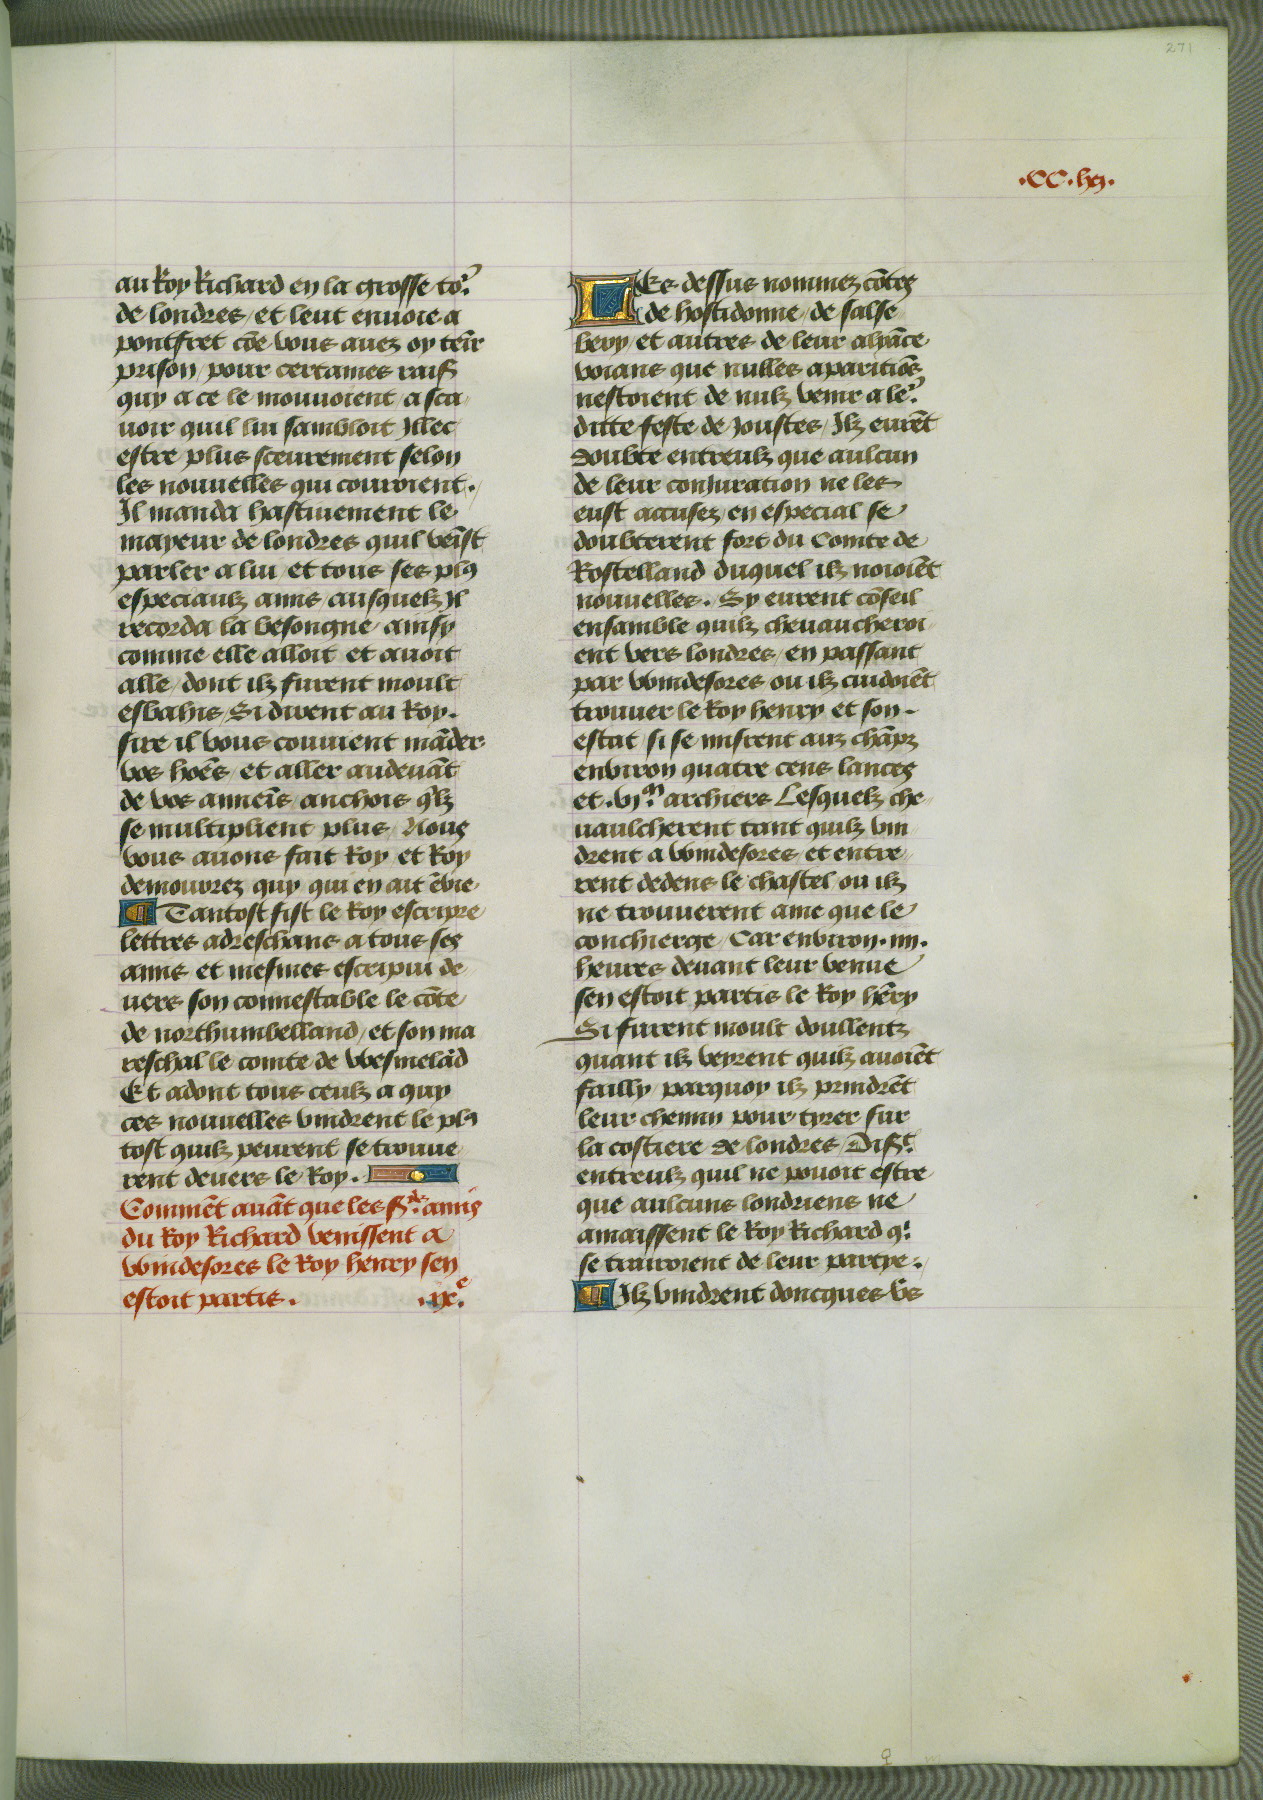 271
.CC.lvi.
au Roy Richard en la grosse to.ͬ
de londres / et leut enuoie a
pontfret cõe vous auez oy tenir
prison / pour certaines raiß
quy a ce le mouuoient / a sca
uoir quil lui sambloit Jllec
estre plus sceurement selon
les nouuelles qui couroient.
Il manda hastiuement le
mayeur de londres quil venist
parler a lui / et tous ses plꝯ
especiaulz amis / ausquelz Jl
recorda la besongne / ainsy
comme elle alloit et auoit
alle / dont ilz furent moult
esbahis / Si dirent au Roy.
sire il vous couuient mãder
vos hoẽs / et aller audeuãt
de vos anneĩs / anchois qͥlz
se multiplient plus / Nous
vous auons fait Roy / et Roy
demourez quy qui en ait ẽvie
¶ Tantost fist le Roy escripre
lettres adreschans a tous ses
amis et mesmes escripui de
uers son connestable le cõte
de northumbelland / et son ma
reschal le comte de vvesmelãd
Et adont tous ceulz a quy
ces nouuelles vindrent le plꝯ
tost quilz peurent se trouue
rent deuers le Roy.
Commẽt auãt que les ß.ᵈˢ amis
du Roy Richard venissent a
vvindesores le Roy henry sen
estoit partis. .ix.ᵉ
LEs dessus nommez cõtes
de hostidonne / de salse
bery / et autres de leur aliãce
voians que nulles aparitiõs
nestoient de nulz venir a le.ͬ
ditte feste de Joustes / Ilz eurẽt
doubte entreulz que aulcun
de leur conjuration ne les
eust accusez / en especial se
doubterent fort du Comte de
Rostelland duquel ilz noioiẽt
nouuelles. Sy eurent cõseil
ensamble quilz cheuaucheroi
ent vers londres / en passant
par vvindesores ou ilz cuidoiẽt
trouuer le Roy henry et son
estat / si se misrent aux chãpz
enuiron quatre cens lances
et .vj.ᵐ archiers Lesquelz che
uaulcherent tant quilz vin
drent a vvindesores / et entre
rent dedens le chastel ou ilz
ne trouuerent ame que le
conchierge / Car enuiron .iiii.
heures deuant leur venue
sen estoit partis le Roy hẽry
Si furent moult doullentz
quant ilz veyrent quilz auoiẽt
failly / parquoy ilz prindrẽt
leur chemin pour tyrer sur
la costiere de londres / Disß.ᵗ
entreulz quil ne pouoit estre
que aulcuns londriens ne
amaissent le Roy Richard q.ͥ
se trairoient de leur partye.
¶ Ilz vindrent doncques vs̃